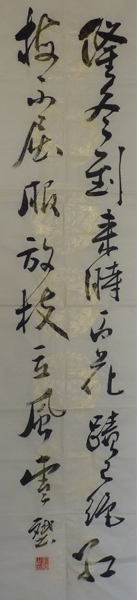 隆冬到来時百花蹟已絕紅
梅不屈服放枝立風雪